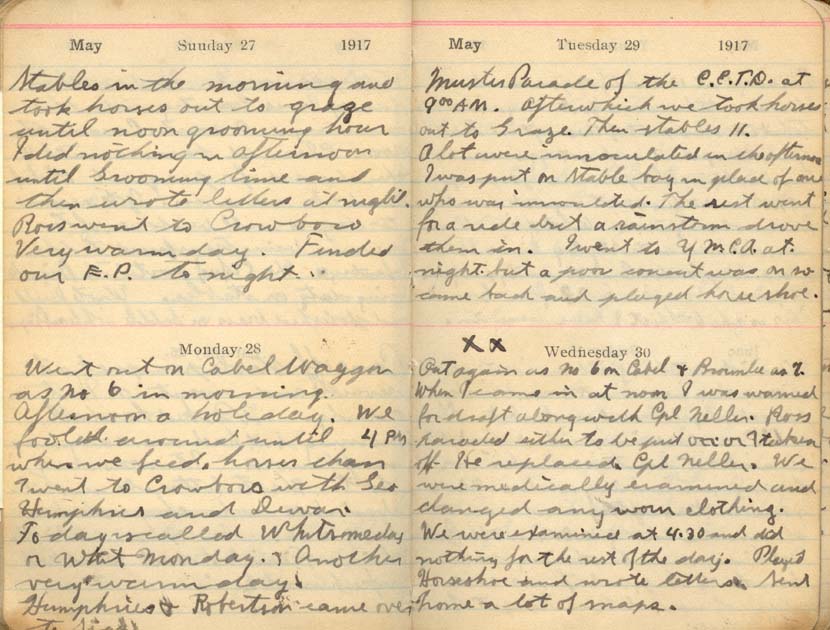 May Sunday 27 1917
Stables in the morning and
took horses out to graze
until noon grooming hour
I did nothing in afternoon
until Grooming time and
then wrote letters at night.
Ross went to Crowboro
Very warm day. Finded
our E.P. to night.
Monday 28
Went out on Cabel Waggon
as No 6 in morning.
Afternoon a holiday. We
fooled around until 4 PM
when we feed, horses than
I went to Crowboro with Geo
Humphries and Dewar.
To day is called Whitsmeday
or Whit Monday. Another
very warm day.
Humphries & Robertson came over
to
May Tuesday 29 1917
Muster Parade of the C.E.T.D. at
9 00 AM. After which we took horses
out to Graze. Then stables 11.
A lot were innoculated in the afternoon
I was put on Stable boy in place of one
who was innoculated. The rest went
for a ride but a rainstorm drove
them in. I went to Y.M.C.A. at
night. but a poor concert was on so
came back and played horse shoe.
XX Wednesday 30
Out again as No 6 on Cabel & Bromlee as 7.
When I came in at noon I was warned
for draft along with Cpl Neller. Ross
paraded either to be put on or I taken
off He replaced Cpl Neller. We
were medically examined and
changed any worn clothing.
We were examined at 4.30 and did
nothing for the rest of the day. Played
Horseshoe and wrote letters. Sent
home a lot of maps.